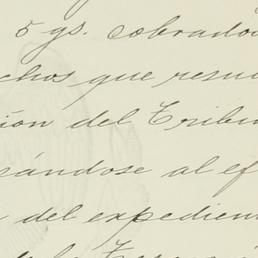 5 gs. cobrado
chos que resu
ión del Tribu
ándose al ef
del expedien